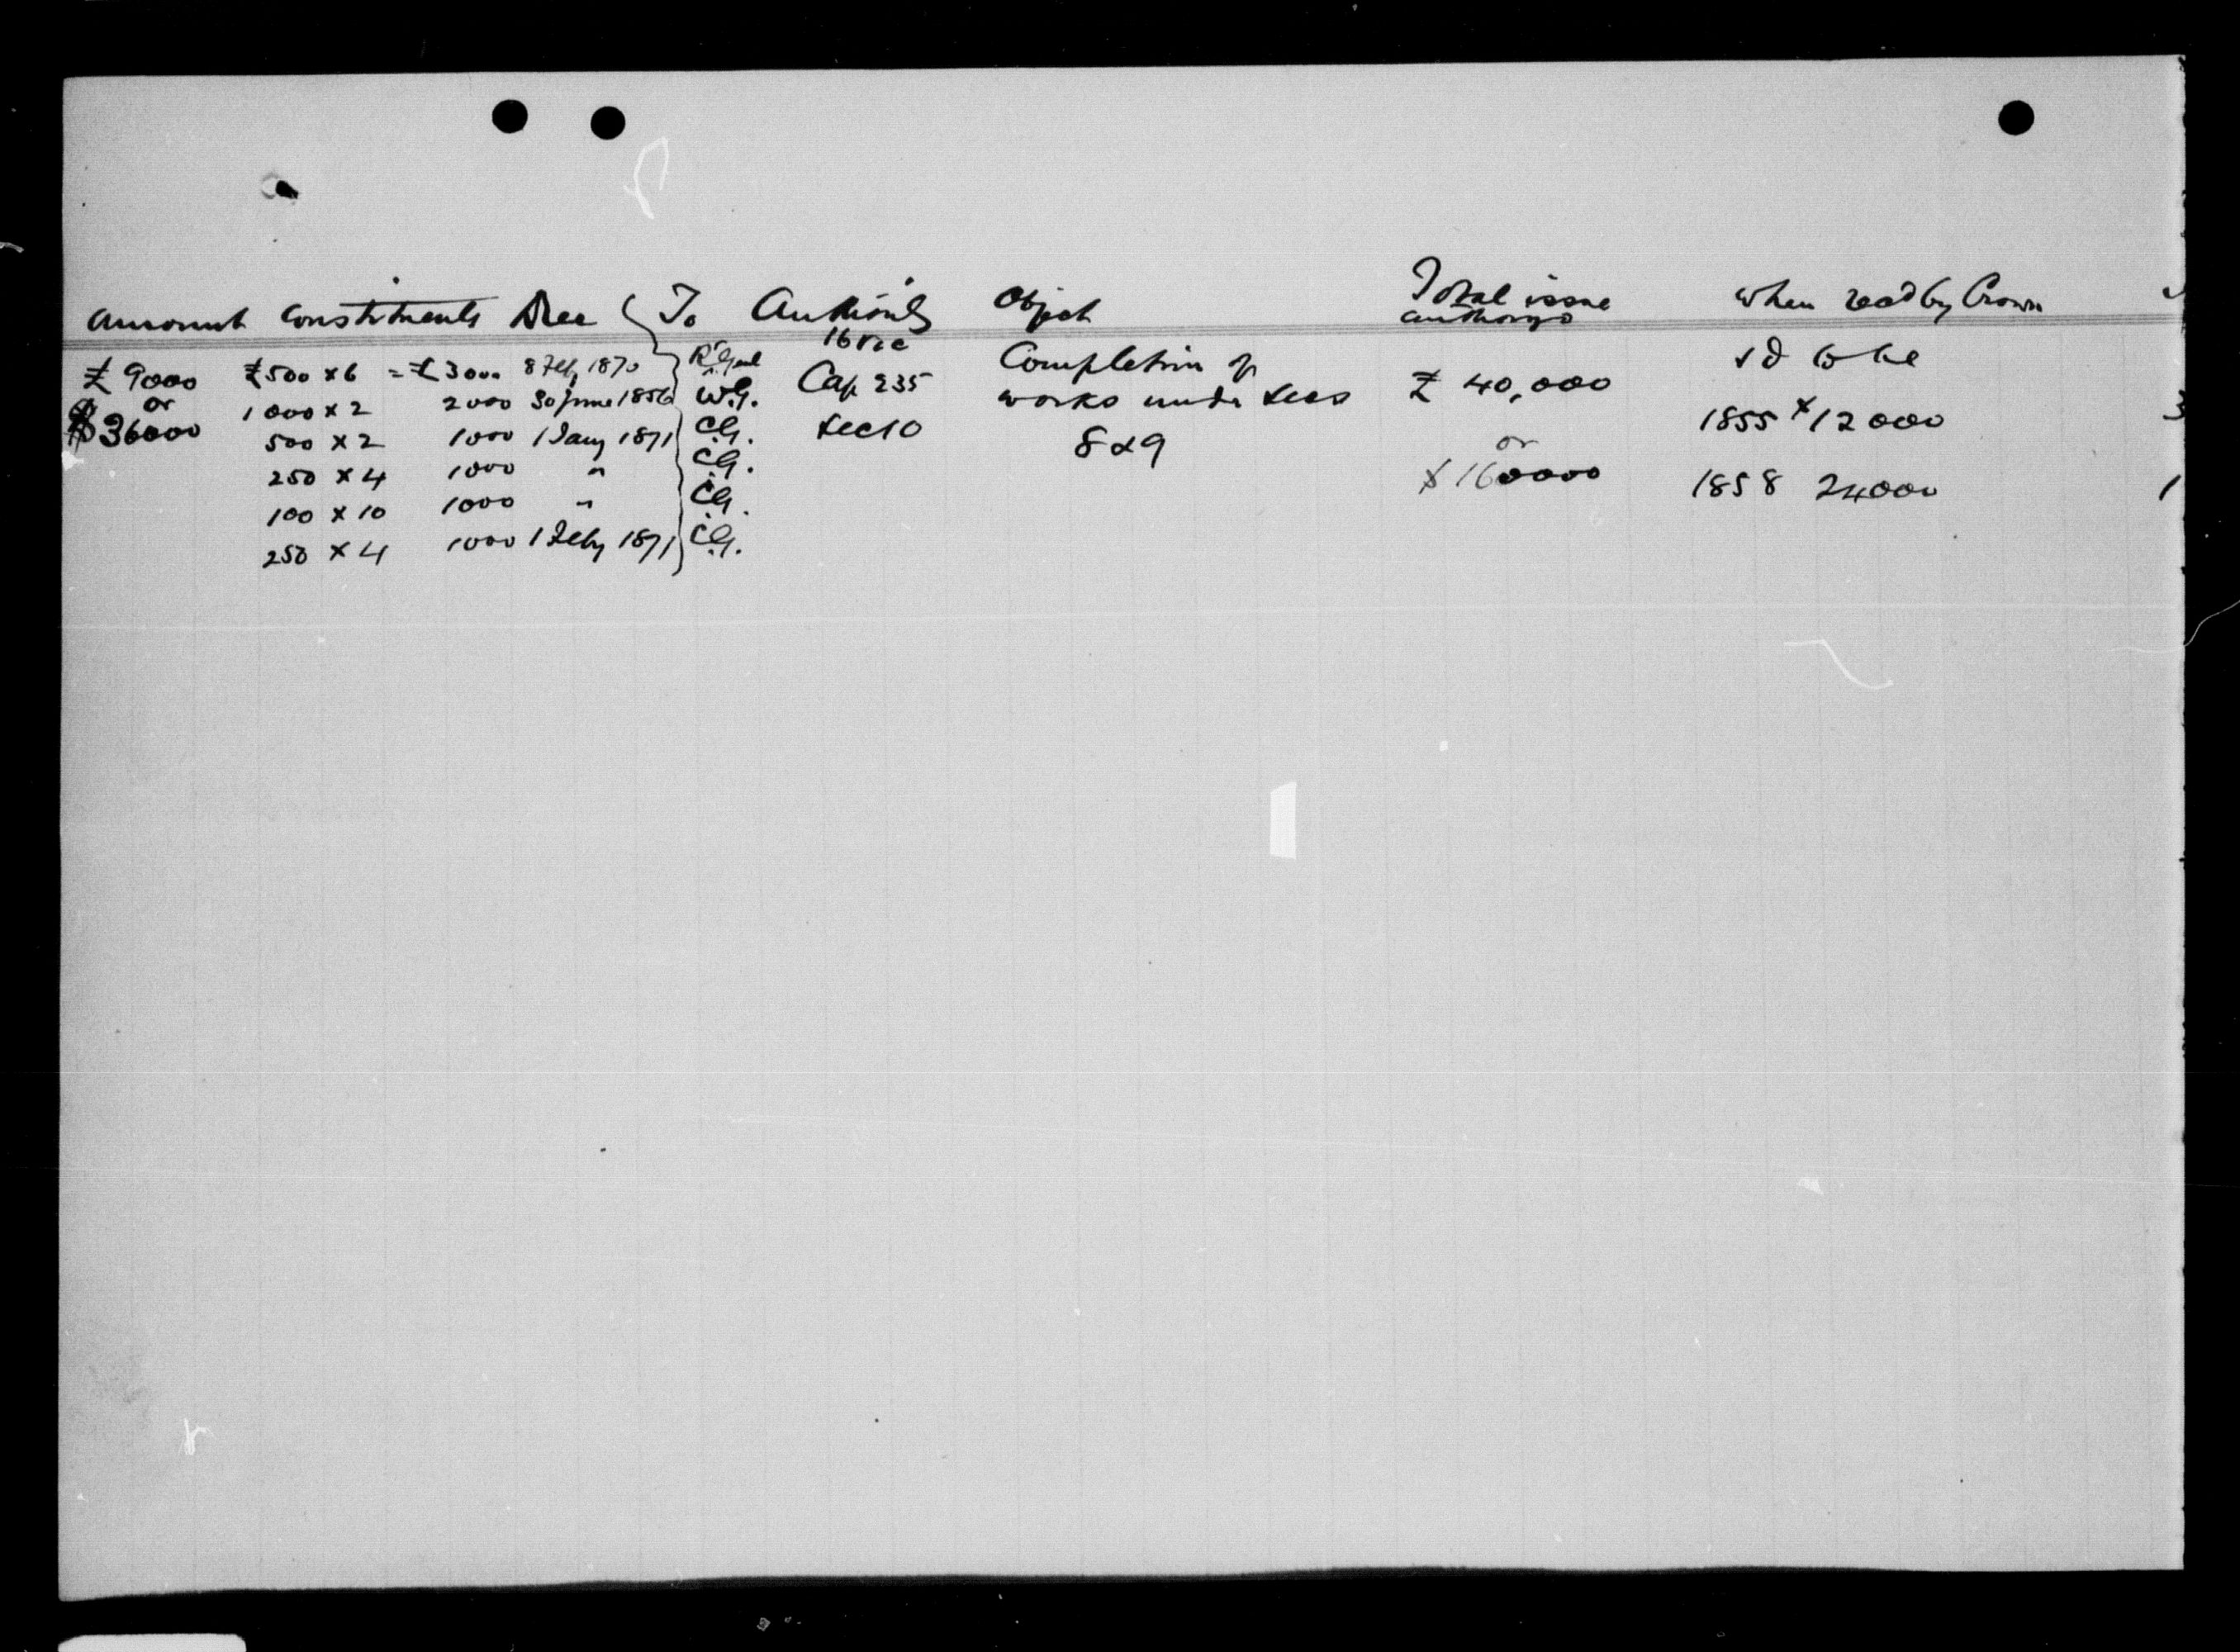 Amount Constituents Due To Authority Object Total issue authorized When recd by Crown
£9000 £500 x 6 = £3000 8 Feb, 1870 R. Genl 16 Vic Completion of £40,000 sd to be
or 1000 x 2 2000 30 June 1856 W.G. Cap 235 works under secs
$36000 500 x 2 1000 1 Jany 1871 C.G. Sec 10 8 & 9 or 1855 $12000 3
250 x 4 1000 " C.G. $160000 1858 24000 1
100 x 10 1000 " C.G.
250 x 4 1000 1 Feby 1871 C.G.